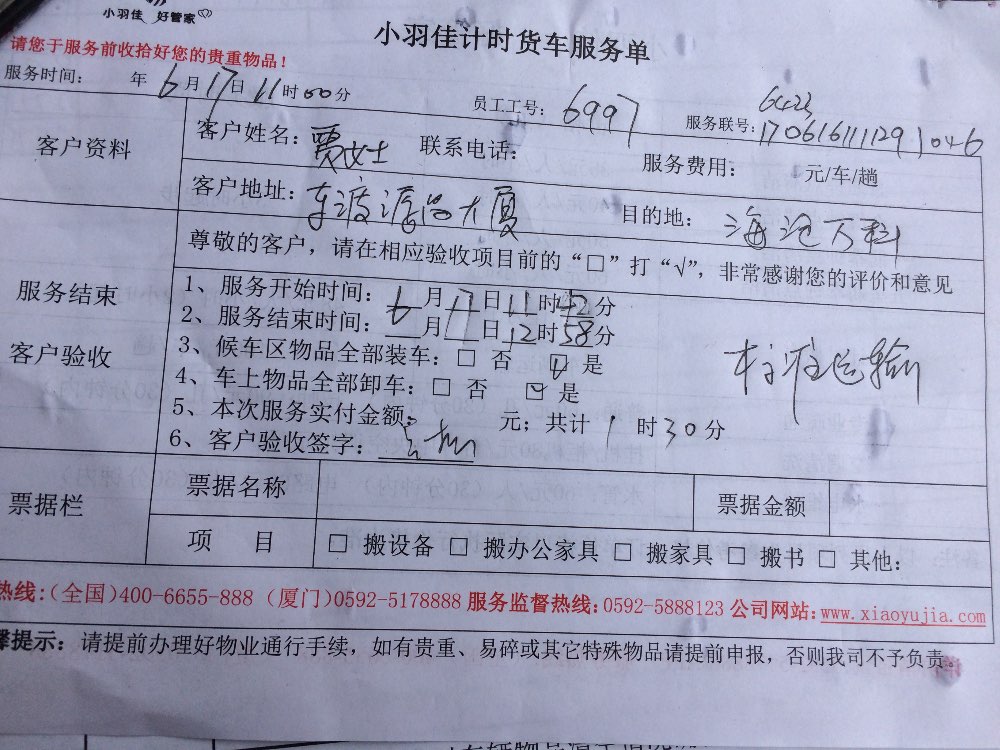 小羽佳 好管家
小羽佳计时货车服务单
请您于服务前收拾好您的贵重物品！
服务时间： 年 6月17日11时00分
员工工号：6997
6423
服务联号：170616111291046
客户资料
客户姓名：贾女士 联系电话： 服务费用： 元/车/趟
客户地址：东渡派尚大厦 目的地：海沧万科
服务结束
客户验收
尊敬的客户，请在相应验收项目前的“□”打“√”，非常感谢您的评价和意见
1、服务开始时间：6月17日11时42分
2、服务结束时间：6月 日12时58分
3、候车区物品全部装车：□ 否 ☑ 是
4、车上物品全部卸车：□ 否 ☑ 是
5、本次服务实付金额： 元；共计1时30分
6、客户验收签字：
运输
票据栏
票据名称 票据金额
项 目 □ 搬设备 □ 搬办公家具 □ 搬家具 □ 搬书 □ 其他：
热线：（全国）400-6655-888（厦门）0592-5178888 服务监督热线：0592-5888123 公司网站：www.xiaoyujia.com
馨提示：请提前办理好物业通行手续，如有贵重、易碎或其它特殊物品请提前申报，否则我司不予负责。